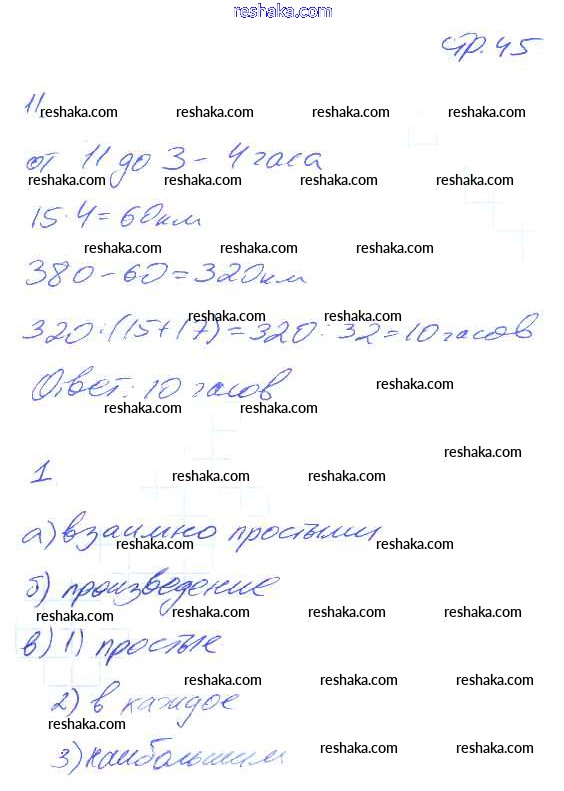 reshaka.com
стр. 45
11
reshaka.com reshaka.com reshaka.com reshaka.com
от 11 до 3 - 4 часа
reshaka.com reshaka.com reshaka.com reshaka.com
15·4=60км
reshaka.com reshaka.com reshaka.com
380-60=320км
reshaka.com reshaka.com
320:(15+17)=320:32=10 часов
reshaka.com
Ответ: 10 часов
reshaka.com reshaka.com
reshaka.com
1
reshaka.com reshaka.com
а) взаимно простыми
reshaka.com reshaka.com
б) произведение
reshaka.com reshaka.com reshaka.com reshaka.com
в) 1) простые
reshaka.com reshaka.com reshaka.com
2) в каждое
reshaka.com
3) наибольшим
reshaka.com reshaka.com